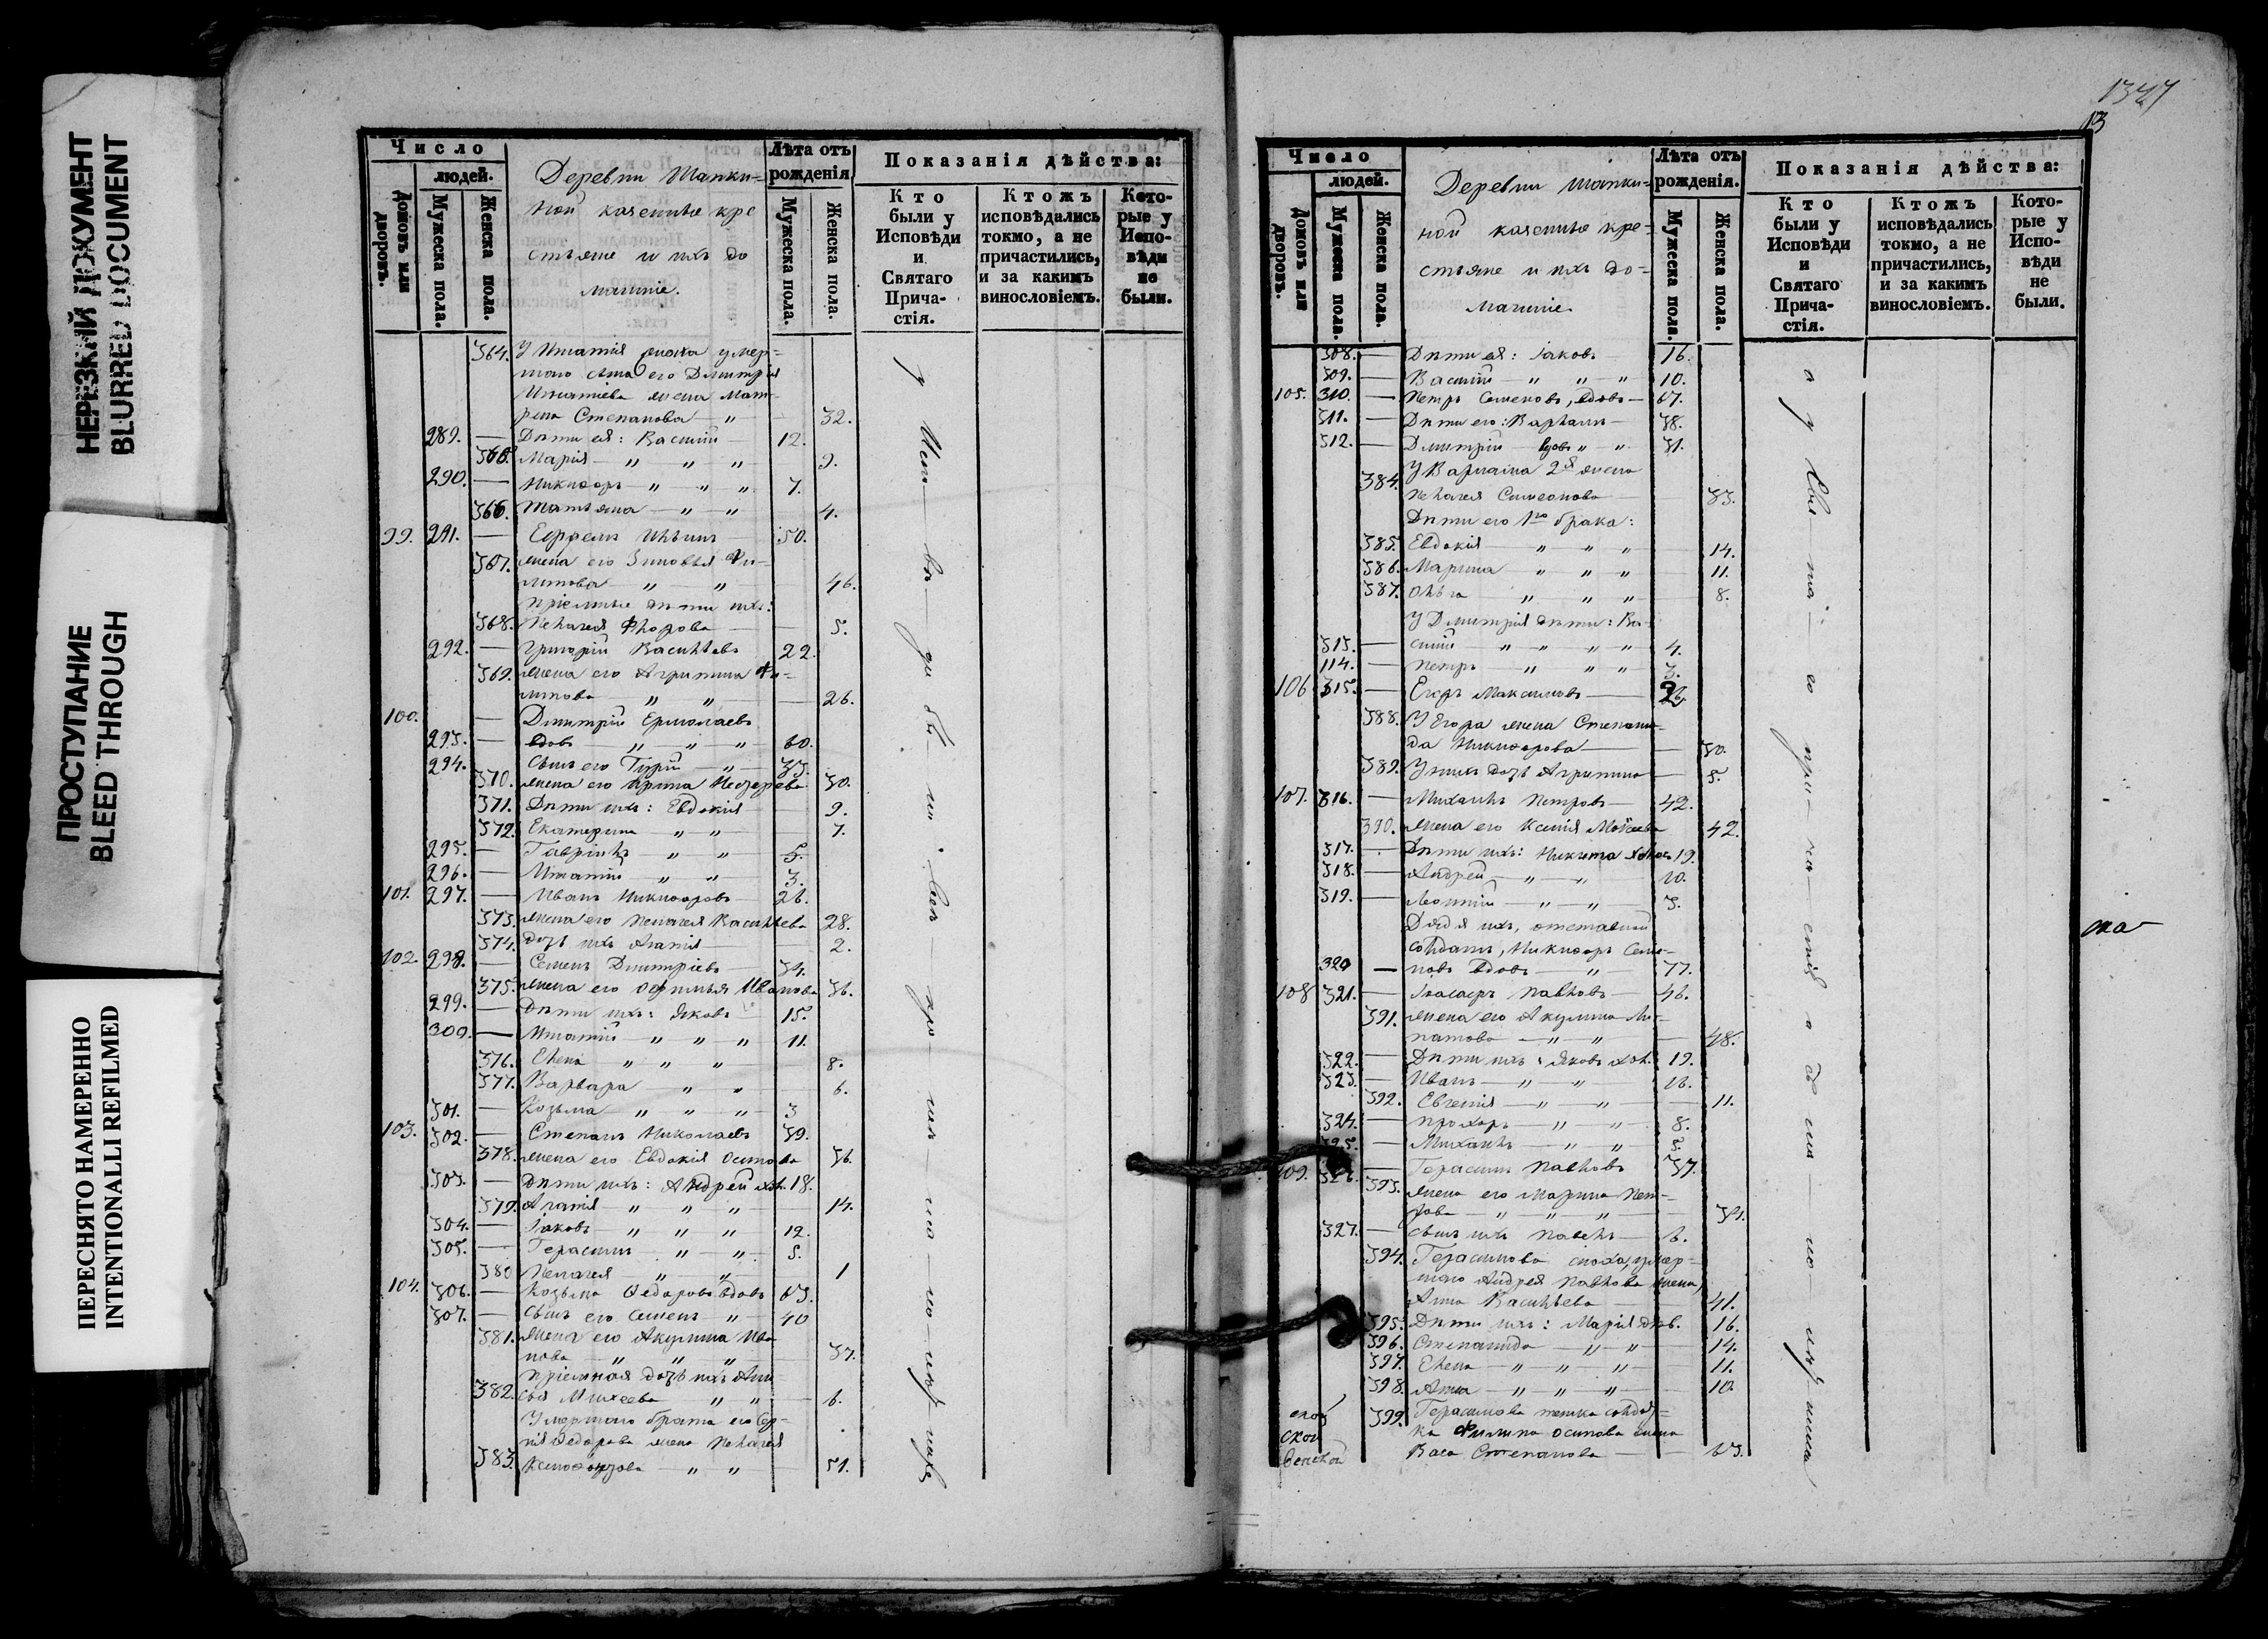 НЕРЕЗКИЙ ДОКУМЕНТ
BLURRED DOCUMENT
ПРОСТУПАНИЕ
BLEED THROUGH
ПЕРЕСНЯТО НАМЕРЕННО
INTENTIONALLI REFILMED
Число
людей.
Домовъ или дворовъ.
Мужеска пола.
Женска пола.
Деревни Шапки=
ной казенные кре
стьяне и ихъ до
машніе.
Лѣта отъ рожденія
Мужеска пола.
Женска пола.
Показанія дѣйства:
Кто были у Исповѣди и Святаго Прича-стія.
Ктожъ исповѣдались токмо, а не причастились, и за какимъ винословіемъ.
Кото-рые у Испо-вѣди не были.
364. У Игнатія сноха умер=
шаго сына его Дмитрія
Игнатіева жена Мат-
рена Степанова — " 32.
289. — Дѣти ея: Василій 12.
Марія — " — " — " 9.
290. — Никифоръ — " " " 7.
366. Татьяна — " — " 4.
99. 291. — Ефремъ Ильинъ 50.
367. жена его Зиновья Фи-
липова " " 46.
Пріемные дѣти ихъ:
368. Пелагея Флорова 5.
292. — Григорій Васильевъ 22.
369. жена его Агрипина Фи-
липова " " 26.
100. — Дмитрій Ермолаевъ
293. — вдовъ " — " — " 60.
294. — Сынъ его Гурій — " 33.
370. жена его Ирина 30.
371. Дѣти ихъ: Евдокія 9.
372. Екатерина " " 7.
295. — Гавріилъ — " — " 5.
296. — Игнатій " " 3.
101. 297. — Иванъ Никифоровъ 26.
373. жена его Пелагея Васильева 28.
374. дочь ихъ Агапія 2.
102. 298. — Семенъ Дмитріевъ 34.
375. жена его Иванова 36.
299. — Дѣти ихъ: Яковъ 15.
300. — Игнатій " " " 11.
376. Елена " " " 8.
377. Варвара " " 6.
301. — Козьма " " " 3
103. 302. — Степанъ Николаевъ 39.
378. жена его Евдокія Осипова 36.
303. — Дѣти ихъ: Андрей хол. 18.
379. Агапія " " " 14.
304. — Іаковъ " " " 12.
305. — Герасимъ " " 5.
380 Пелагея " " 1
104. 306. — Козьма Ѳедоровъ вдовъ 63.
307. — Сынъ его Семенъ — " 40
381. жена его Акулина Ива
нова — " " " 37.
Пріемная дочь ихъ Ани
382. сья Михеева " " 6.
Умершаго брата его Сер-
гія Ѳедорова жена Пелагея
383. Ксенофонтова " " 51.
1347
13
Число
людей.
Домовъ или дворовъ.
Мужеска пола.
Женска пола.
Деревни Шапки=
ной казенные кре=
стьяне и ихъ до=
машніе.
Лѣта отъ рожденія.
Мужеска пола.
Женска пола.
Показанія дѣйства:
Кто были у Исповѣди и Святаго Прича-стія.
Ктожъ исповѣдались токмо, а не причастились, и за какимъ винословіемъ.
Кото-рые у Испо-вѣди не были.
308. — Дѣти ея: Іаковъ 16.
309. — Василій — " " " 10.
105. 310. — Петръ Семеновъ, вдовъ — 67.
311. — Дѣти его: Варлаамъ 38.
312. — Дмитрій вдовъ " " 31.
У Варлаама 2я жена
384. Пелагея Симеонова 33.
Дѣти его 1го брака:
385. Евдокія " " " 14.
386. Марина " " " 11.
387. Ольга " " " 8.
У Дмитрія дѣти: Ва-
313. — силій " " " " 4.
114. — Петръ " " " 3.
106 315. — Егоръ Максимовъ
388. У Егора жена Степани-
да Никифорова 30.
389. У нихъ дочь Агрипина 5.
107. 316. — Михаилъ Петровъ 42.
390. жена его Ксенія Моисеева 42.
317. — Дѣти ихъ: Никита холос. 19.
318. — Андрей " " 10.
319. — Леонтій " " 3.
Дядя ихъ, отставной
солдатъ, Никифоръ Семе-
320 — новъ вдовъ " 77.
108 321. — Павловъ 46.
391. жена его Акулина
— " — " 48.
322. — Дѣти ихъ: Яковъ хол. 19.
323. — Иванъ — " — " 16.
392. Евгенія — " — " 11.
324. — Прохоръ — " — " 8.
325. — Михаилъ — " " 5.
109. — Герасимъ Павловъ 37.
393. жена его Марина Пет-
рова — " " "
327. — Сынъ ихъ Павелъ 6.
394. Герасимова сноха, умер=
шаго Андрея Павлова жена,
Анна Васильева 41.
395. Дѣти ихъ: Марія дѣв. 16.
396. Степанида — " " 14.
397. Елена — " " " 11.
398. Анна — " " " 10.
399. Герасимова тетка солдат=
ка Филипа Осипова жена
Васа Степанова 63.